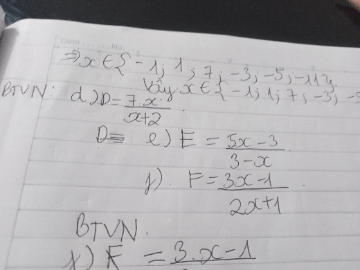 ⇒ x ∈ { -1, 1, 7, -3, -5, -11 }
Vậy x ∈ { -1, 1, 7, -3, -5
BTVN: d) D = 7x / x+2
D= e) E = 5x - 3 / 3 - x
f). F = 3x - 1 / 2x + 1
BTVN.
F = 3x - 1